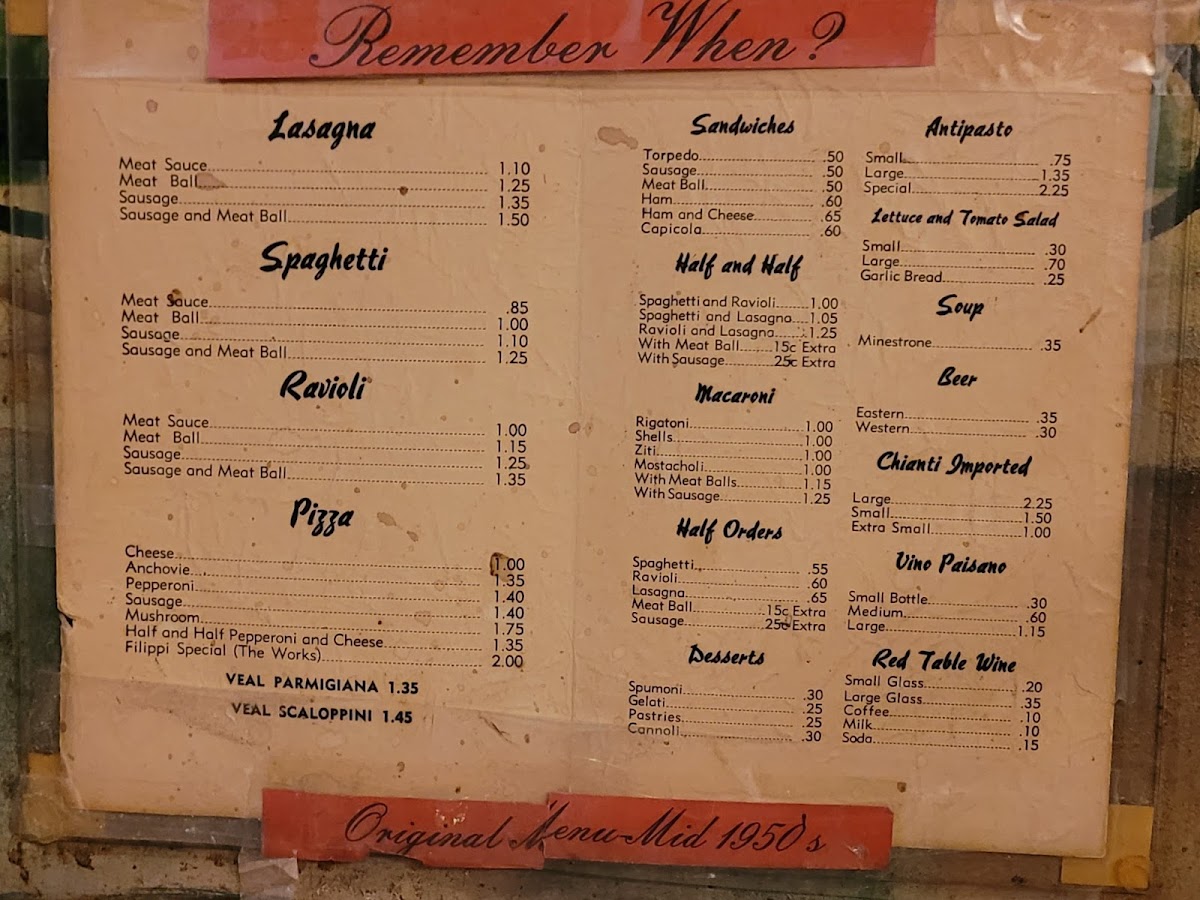 Remember When?
Lasagna
Meat Sauce 1.10
Meat Ball 1.25
Sausage 1.35
Sausage and Meat Ball 1.50
Spaghetti
Meat Sauce .85
Meat Ball 1.00
Sausage 1.10
Sausage and Meat Ball 1.25
Ravioli
Meat Sauce 1.00
Meat Ball 1.15
Sausage 1.25
Sausage and Meat Ball 1.35
Pizza
Cheese 1.00
Anchovie 1.35
Pepperoni 1.40
Sausage 1.40
Mushroom 1.75
Half and Half Pepperoni and Cheese 1.35
Filippi Special (The Works) 2.00
VEAL PARMIGIANA 1.35
VEAL SCALOPPINI 1.45
Sandwiches
Torpedo .50
Sausage .50
Meat Ball .50
Ham .60
Ham and Cheese .65
Capicola .60
Half and Half
Spaghetti and Ravioli 1.00
Spaghetti and Lasagna 1.05
Ravioli and Lasagna 1.25
With Meat Ball 15c Extra
With Sausage 25c Extra
Macaroni
Rigatoni 1.00
Shells 1.00
Ziti 1.00
Mostacholi 1.00
With Meat Balls 1.15
With Sausage 1.25
Half Orders
Spaghetti .55
Ravioli .60
Lasagna .65
Meat Ball 15c Extra
Sausage 25c Extra
Desserts
Spumoni .30
Gelati .25
Pastries .25
Cannoli .30
Antipasto
Small .75
Large 1.35
Special 2.25
Lettuce and Tomato Salad
Small .30
Large .70
Garlic Bread .25
Soup
Minestrone .35
Beer
Eastern .35
Western .30
Chianti Imported
Large 2.25
Small 1.50
Extra Small 1.00
Vino Paisano
Small Bottle .30
Medium .60
Large 1.15
Red Table Wine
Small Glass .20
Large Glass .35
Coffee .10
Milk .10
Soda .15
Original Menu-Mid 1950's